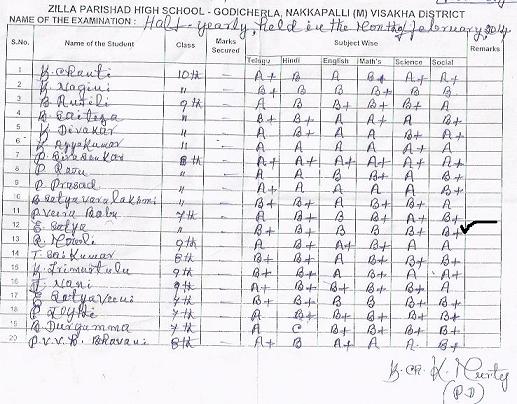 ZILLA PARISHAD HIGH SCHOOL - GODICHERLA, NAKKAPALLI (M) VISAKHA DISTRICT
NAME OF THE EXAMINATION : Half-yearly, held in the Month of february, 2014
S.No. Name of the Student Class Marks Secured Subject Wise Remarks
Telugu Hindi English Math's Science Social
1 K. Chanti 10th — A+ B A B+ A+ A+
2 K. Nagini " — B+ B B B+ B B
3 9th — A B B+ B+ B+ A
4 " — B+ B+ A A+ A B+
5 K. Divakar " — A B+ A A B+ A+
6 K. Ayyakumar " — A A B+ A B+ A
7 P. 8th — A+ A+ A+ A+ A+ A+
8 P. " — A A B B+ A B+
9 P. Prasad " — A+ A A A B+ A
10 B. Satyavaralakshmi " — B+ B+ A B+ B+ A
11 P. Veera Babu 7th — A B+ B B+ A+ B+
12 E. Satya " — B+ B+ B B+ B B+
13 R. Mouli 9th — A B+ A+ B+ A A
14 T. Sai Kumar 8th — B+ A B+ A B+ B+
15 K. 9th — B+ B+ A B+ A A+
16 J. Nani 9th — A B+ B+ B+ B+ A
17 E. Satyaveni 7th — B+ B+ B B B+ B+
18 P. 7th — A B+ B+ B+ B+ B+
19 B. Durgamma 7th — A C B B+ B+ B+
20 P.V.V.B. Bhavani 8th — A+ B A+ A A B+
K. Murty
(P.D)